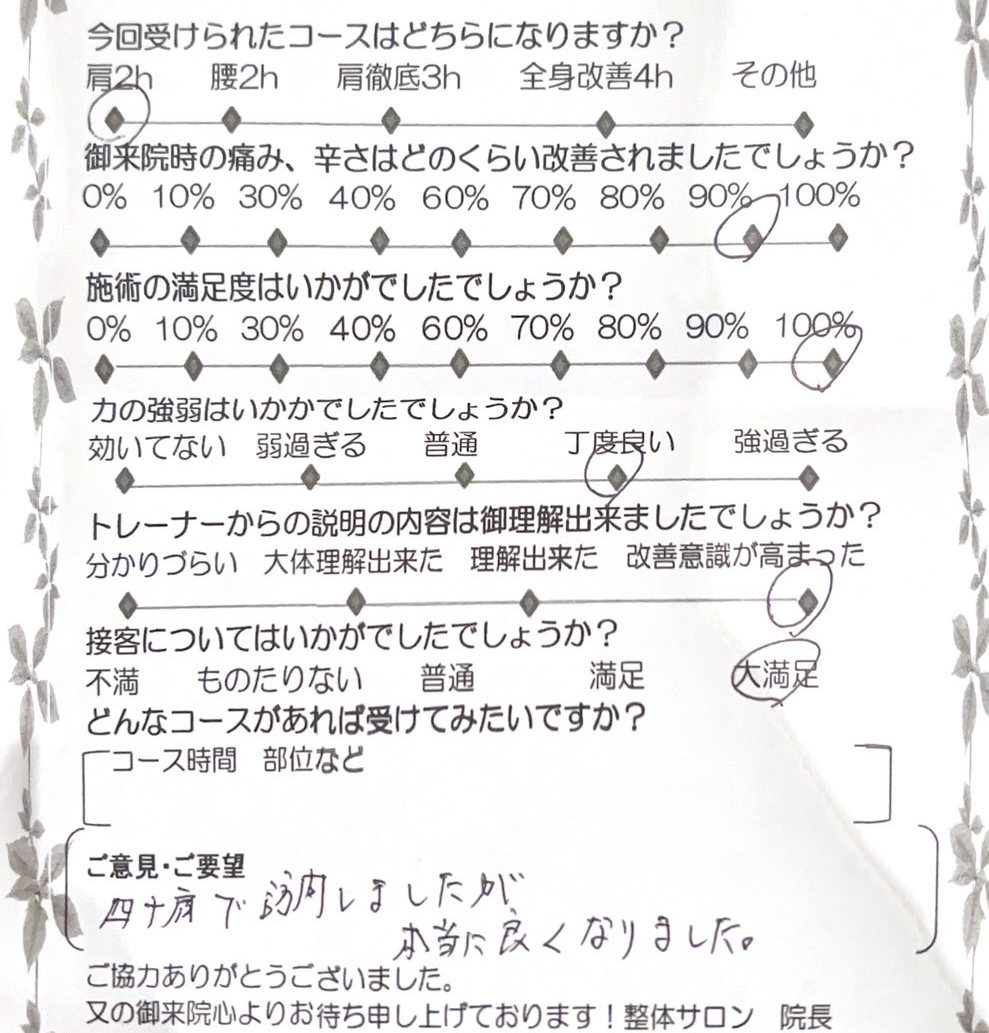 今回受けられたコースはどちらになりますか？
肩2h 腰2h 肩徹底3h 全身改善4h その他
御来院時の痛み、辛さはどのくらい改善されましたでしょうか？
0% 10% 30% 40% 60% 70% 80% 90% 100%
施術の満足度はいかがでしたでしょうか？
0% 10% 30% 40% 60% 70% 80% 90% 100%
力の強弱はいかかでしたでしょうか？
効いてない 弱過ぎる 普通 丁度良い 強過ぎる
トレーナーからの説明の内容は御理解出来ましたでしょうか？
分かりづらい 大体理解出来た 理解出来た 改善意識が高まった
接客についてはいかがでしたでしょうか？
不満 ものたりない 普通 満足 大満足
どんなコースがあれば受けてみたいですか？
コース時間 部位など
ご意見・ご要望
四十肩で訪問しましたが、
本当に良くなりました。
ご協力ありがとうございました。
又の御来院心よりお待ち申し上げております！整体サロン 院長